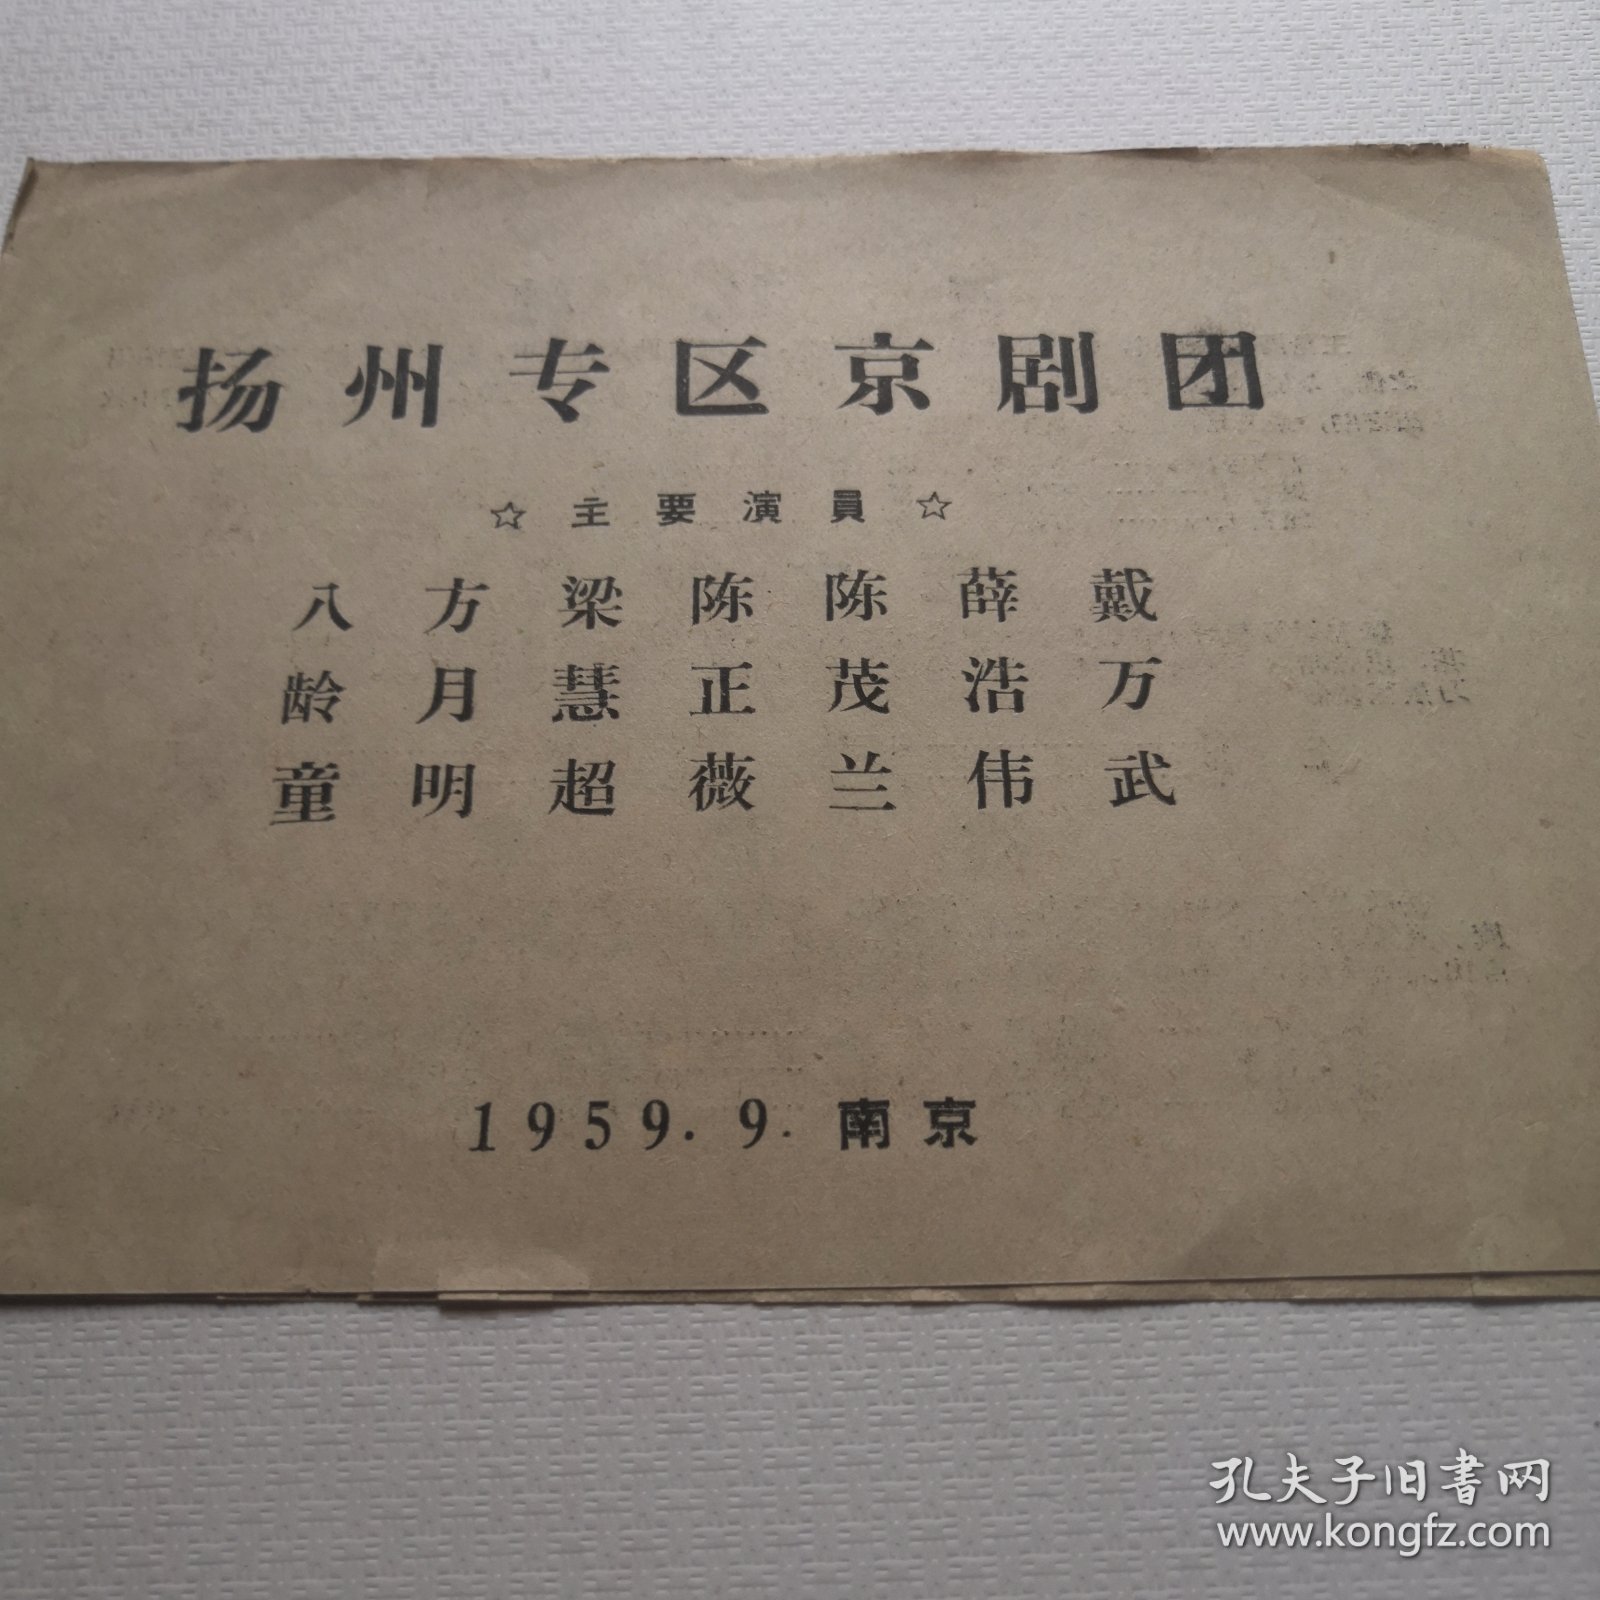 扬州专区京剧团
☆主要演員☆
八龄童
方月明
梁慧超
陈正薇
陈茂兰
薛浩伟
戴万武
1959.9.南京
孔夫子旧书网
www.kongfz.com